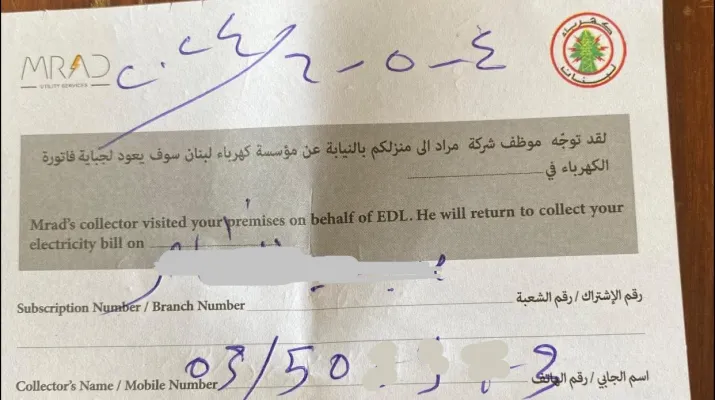 MRAD
UTILITY SERVICES
كهرباء
لبنان
لقد توجّه موظف شركة مراد الى منزلكم بالنيابة عن مؤسسة كهرباء لبنان سوف يعود لجباية فاتورة
الكهرباء في
Mrad's collector visited your premises on behalf of EDL. He will return to collect your
electricity bill on
Subscription Number / Branch Number رقم الإشتراك / رقم الشعبة
Collector's Name / Mobile Number 03/50 اسم الجابي / رقم الهاتف